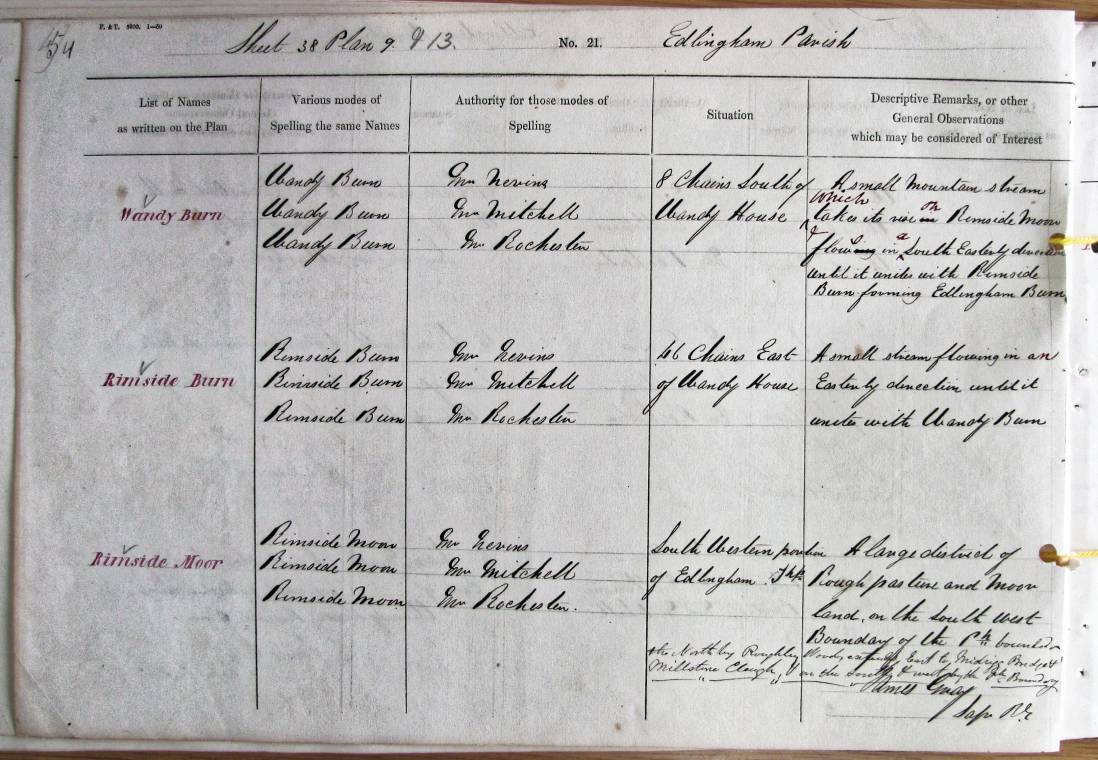 54
F. & T. 5000. 1—59
Sheet 38 Plan 9. & 13. No. 21. Edlingham Parish
List of Names
as written on the Plan
Various modes of
Spelling the same Names
Authority for those modes of
Spelling
Situation
Descriptive Remarks, or other
General Observations
which may be considered of Interest
Wandy Burn
Wandy Burn
Wandy Burn
Wandy Burn
Mr Nevins
Mr Mitchell
Mr Rochester
8 Chains South of
Wandy House
A small Mountain stream
which
takes its rise in on Rimside Moor
& flowing s in a South Easterly direction
until it unites with Rimside
Burn forming Edlingham Burn
Rimside Burn
Rimside Burn
Rimside Burn
Rimside Burn
Mr Nevins
Mr Mitchell
Mr Rochester
46 Chains East
of Wandy House
A small stream flowing in an
Easterly direction until it
unites with Wandy Burn
Rimside Moor
Rimside Moor
Rimside Moor
Rimside Moor
Mr Nevins
Mr Mitchell
Mr Rochester.
South Western portion
of Edlingham
A large district of
Rough pasture and Moor
land, on the South West
Boundary of the Ph bounded on
the North by Roughley Wood, extends East to Bridge &
Millstone Clough, on the South & west by the Boundary
James Gray
Sapr R.E